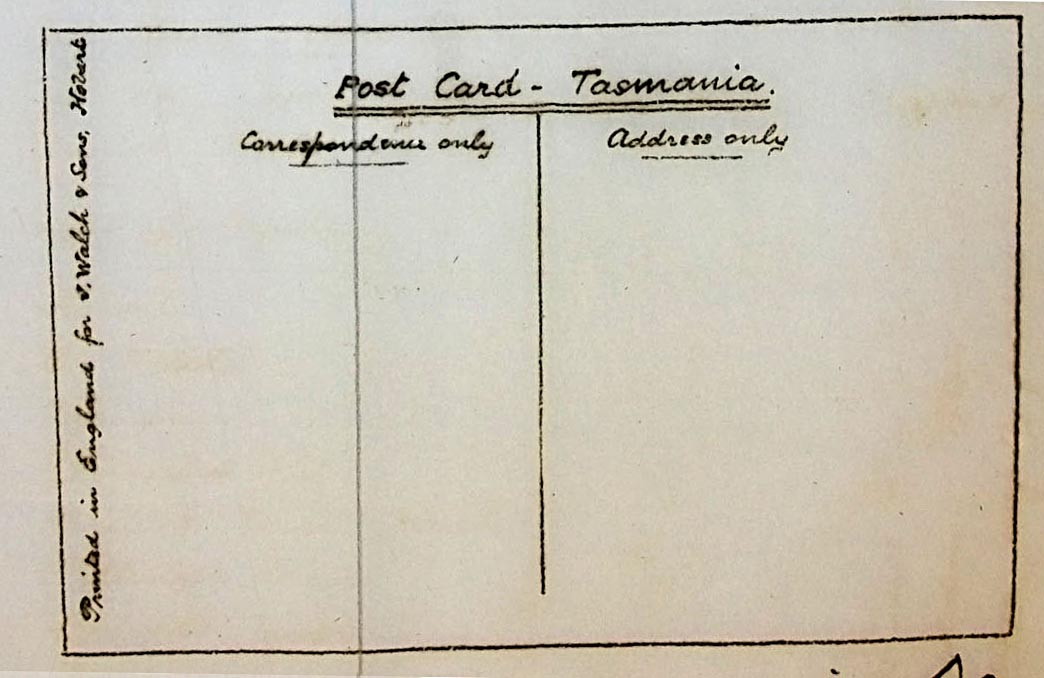 Post Card - Tasmania.
Correspondence only
Address only
Printed in England for J. Walch & Sons, Hobart